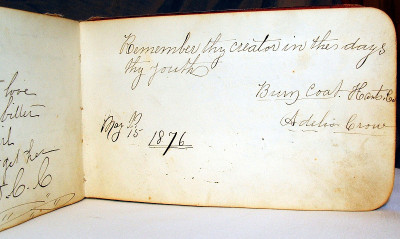 love
bitter
get her
J. C. C
Remember thy creator in the days
thy youth
Burn Coat. Hart. Co
Adelia Crow
May 15
1876